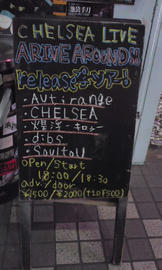 CHELSEA LIVE
ARINE AROUND
release
・Autirange
・CHELSEA
・爆浮
・dibs
・SoultoU
OPen/Start
18:00 / 18:30
adv./door
¥1500/¥2000(+1D¥500)